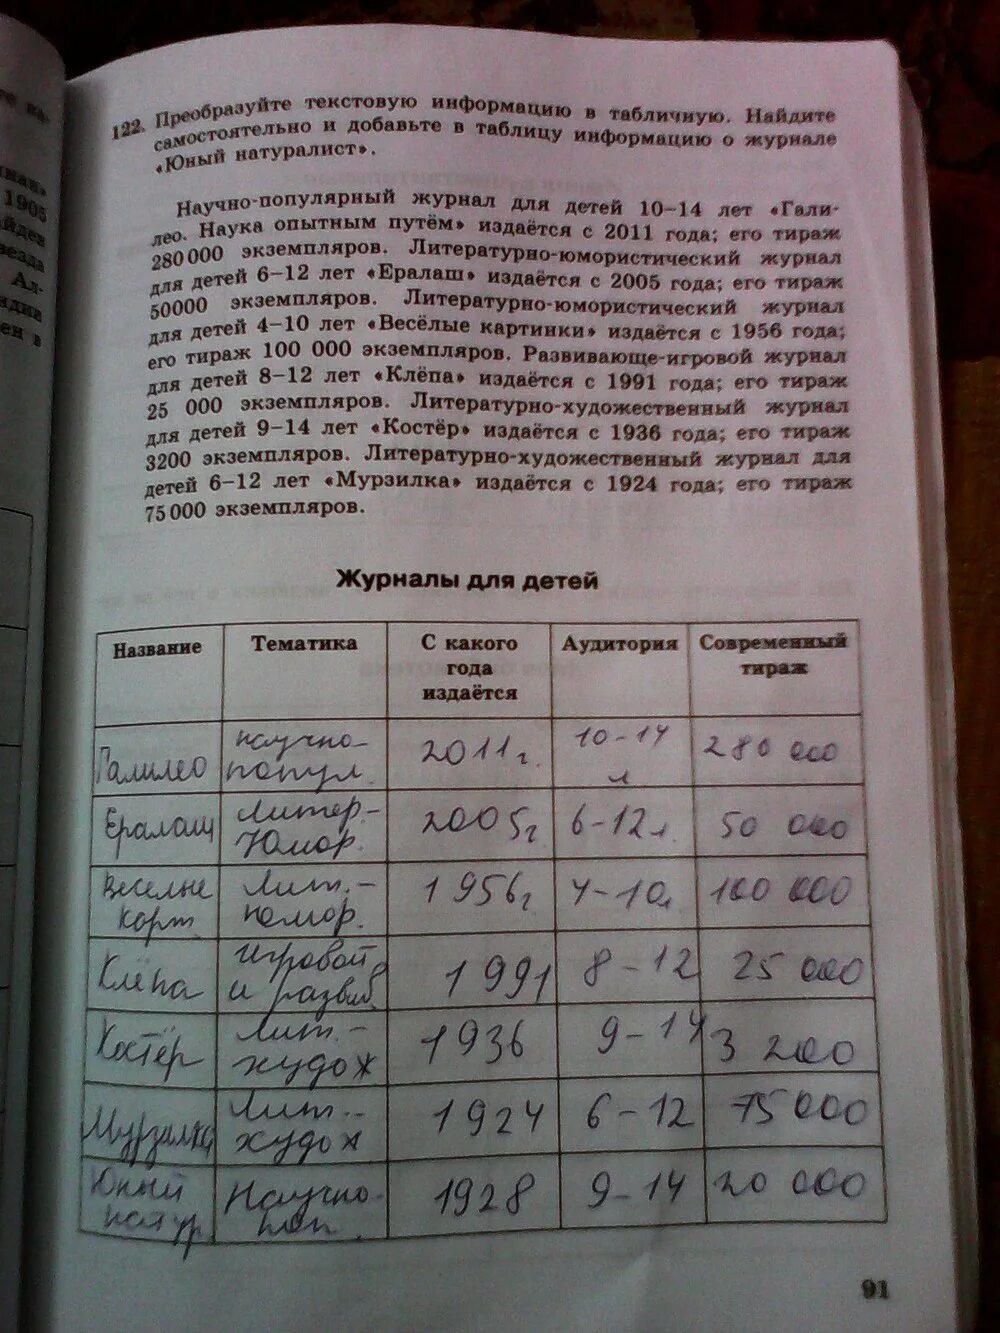 122. Преобразуйте текстовую информацию в табличную. Найдите
самостоятельно и добавьте в таблицу информацию о журнале
«Юный натуралист».
Научно-популярный журнал для детей 10–14 лет «Гали-
лео. Наука опытным путём» издаётся с 2011 года; его тираж
280000 экземпляров. Литературно-юмористический журнал
для детей 6–12 лет «Ералаш» издаётся с 2005 года; его тираж
50000 экземпляров. Литературно-юмористический журнал
для детей 4–10 лет «Весёлые картинки» издаётся с 1956 года;
его тираж 100 000 экземпляров. Развивающе-игровой журнал
для детей 8–12 лет «Клёпа» издаётся с 1991 года; его тираж
25 000 экземпляров. Литературно-художественный журнал
для детей 9–14 лет «Костёр» издаётся с 1936 года; его тираж
3200 экземпляров. Литературно-художественный журнал для
детей 6–12 лет «Мурзилка» издаётся с 1924 года; его тираж
75000 экземпляров.
Журналы для детей
Название Тематика С какого Аудитория Современный
года тираж
издаётся
Галилео научно- 2011г. 10-14 280 000
попул. л
Ералаш Литер.- 2005г 6-12л. 50 000
Юмор.
Веселые Лит.- 1956г 4-10л 100 000
карт
Клёпа игровой 1991 8-12 25 000
и развив
Костёр Лит.- 1936 9-14 3 200
худож
Мурзилка Лит.- 1924 6-12 75 000
худож
Юный Научно- 1928 9-14 20 000
натур поп.
91
1905
Ал-
ен в